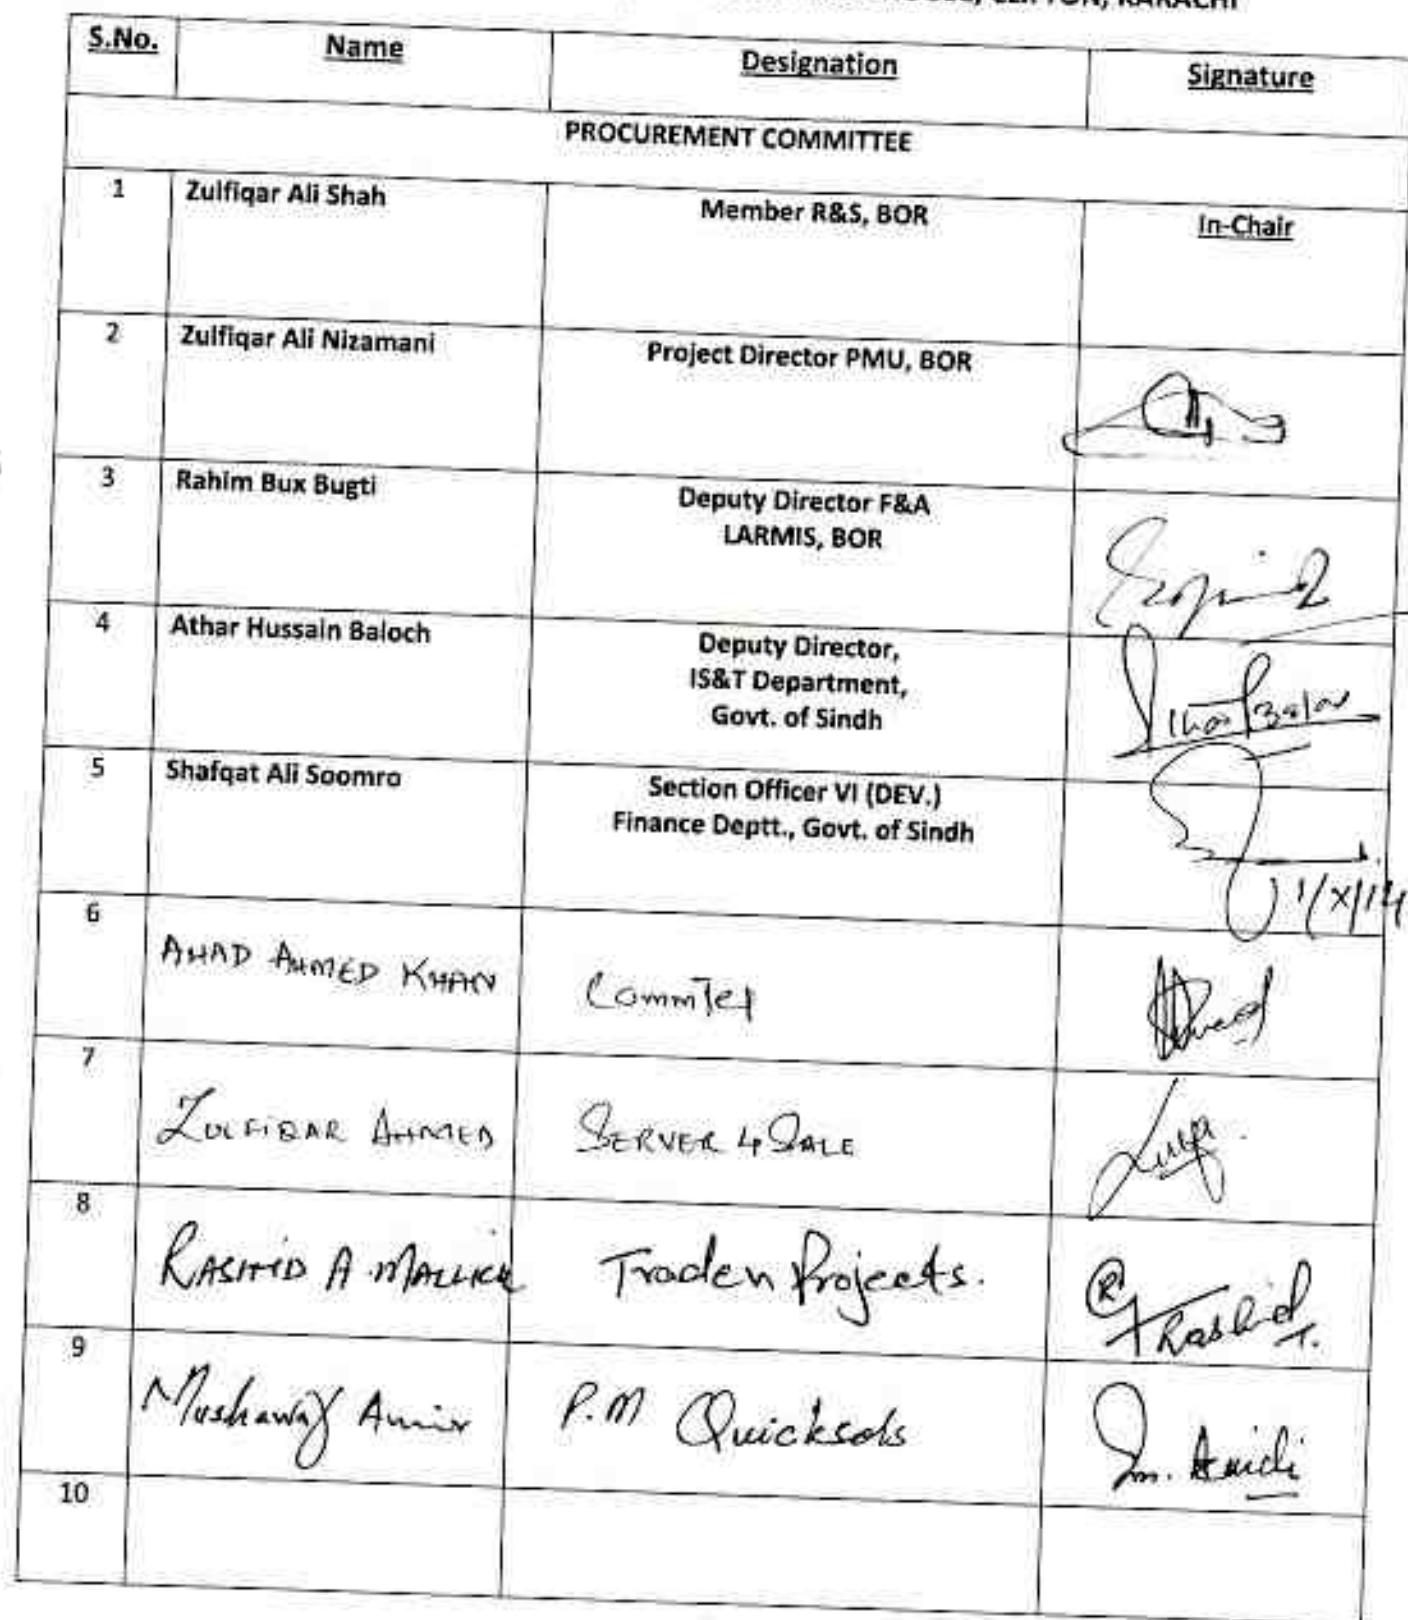 CLIFTON, KARACHI
S.No. Name Designation Signature
PROCUREMENT COMMITTEE
1 Zulfiqar Ali Shah Member R&S, BOR In-Chair
2 Zulfiqar Ali Nizamani Project Director PMU, BOR
3 Rahim Bux Bugti Deputy Director F&A
LARMIS, BOR
4 Athar Hussain Baloch Deputy Director,
IS&T Department,
Govt. of Sindh
5 Shafqat Ali Soomro Section Officer VI (DEV.)
Finance Deptt., Govt. of Sindh
1/X/14
6
AHAD AHMED KHAN Commtel
7
ZULFIQAR AHMED SERVER 4 SALE
8
RASHID A MALLICK Traden Projects.
Rashid
9
Amir P.M Quicksols
10